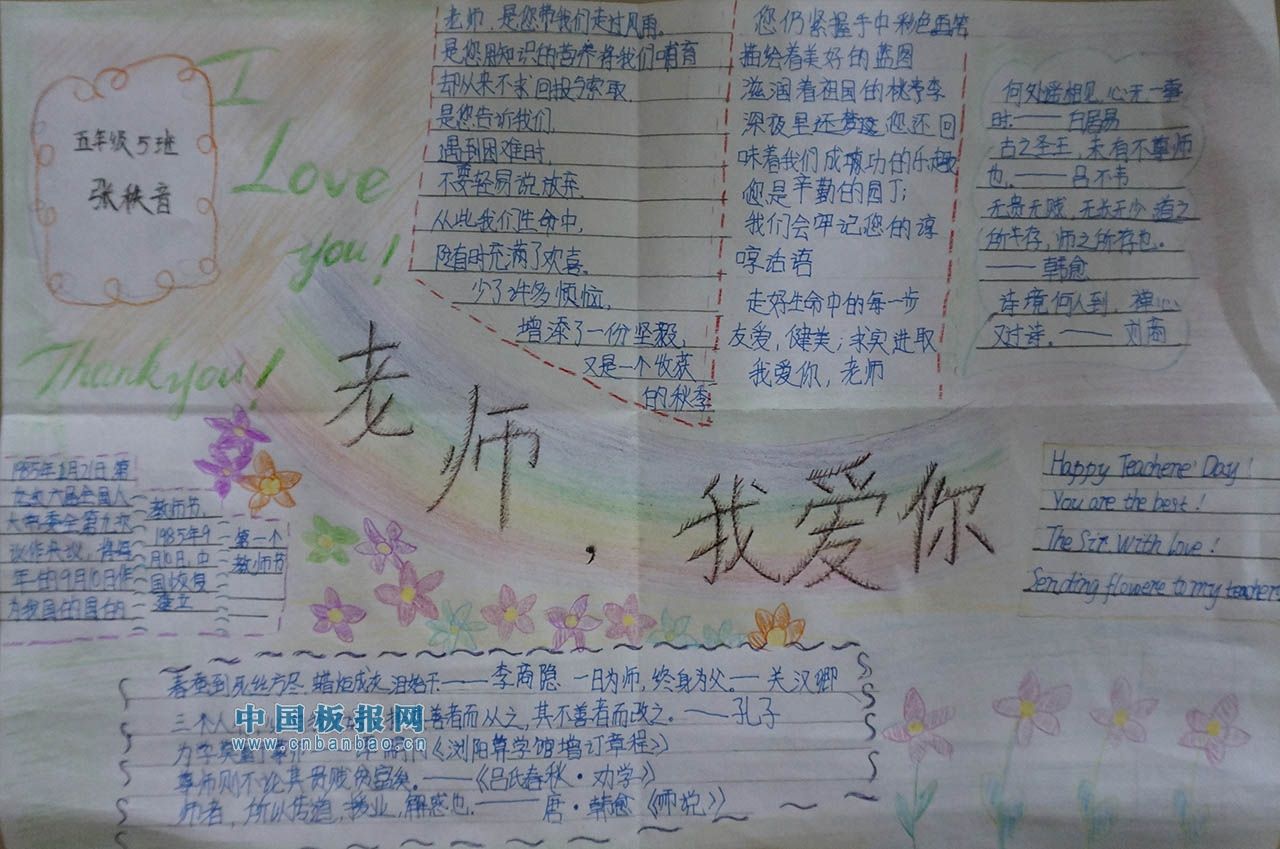 五年级5班
张秩音
I
Love
you!
Thank you!
老师，是您带我们走过风雨。
是您用知识的营养将我们哺育
却从来不求回报与索取.
是您告诉我们,
遇到困难时,
不要轻易说放弃.
从此我们生命中,
随时充满了欢喜.
少了许多烦恼,
增添了一份坚毅,
又是一个收获
的秋季
您仍紧握手中彩色画笔
描绘着美好的蓝图
滋润着祖国的桃李
深夜里还梦 您还回
味着我们成功的乐趣
您是辛勤的园丁;
我们会牢记您的谆
谆话语
走好生命中的每一步
友爱，健美；求实进取
我爱你，老师
何处遥相见,心无一事
时.——白居易
古之圣王，未有不尊师
也.——吕不韦
无贵无贱，无长无少，道之
所存，师之所存也。
——韩愈
诗境何人到，禅心
又过诗.——刘商
老师，我爱你
1985年1月21日第
九次六届全国人
大常委会第九次
议作决议，将每
年的9月10日作
为我国的
教师节.
1985年9
月10日,中
国恢复
建立
第一个
教师节
Happy Teachere' Day!
You are the best!
The Sir With Love!
Sending flowere to my teachers
春蚕到死丝方尽,蜡炬成灰泪始干.——李商隐 一日为师，终身为父.—关汉卿
三个人 善者而从之，其不善者而改之。——孔子
为学莫重于尊师 《浏阳算学馆增订章程》
尊师则不论其贵贱贫富矣.——《吕氏春秋·劝学》
师者，所以传道，授业，解惑也.——唐·韩愈《师说》
中国板报网
www.cnbanbao.cn